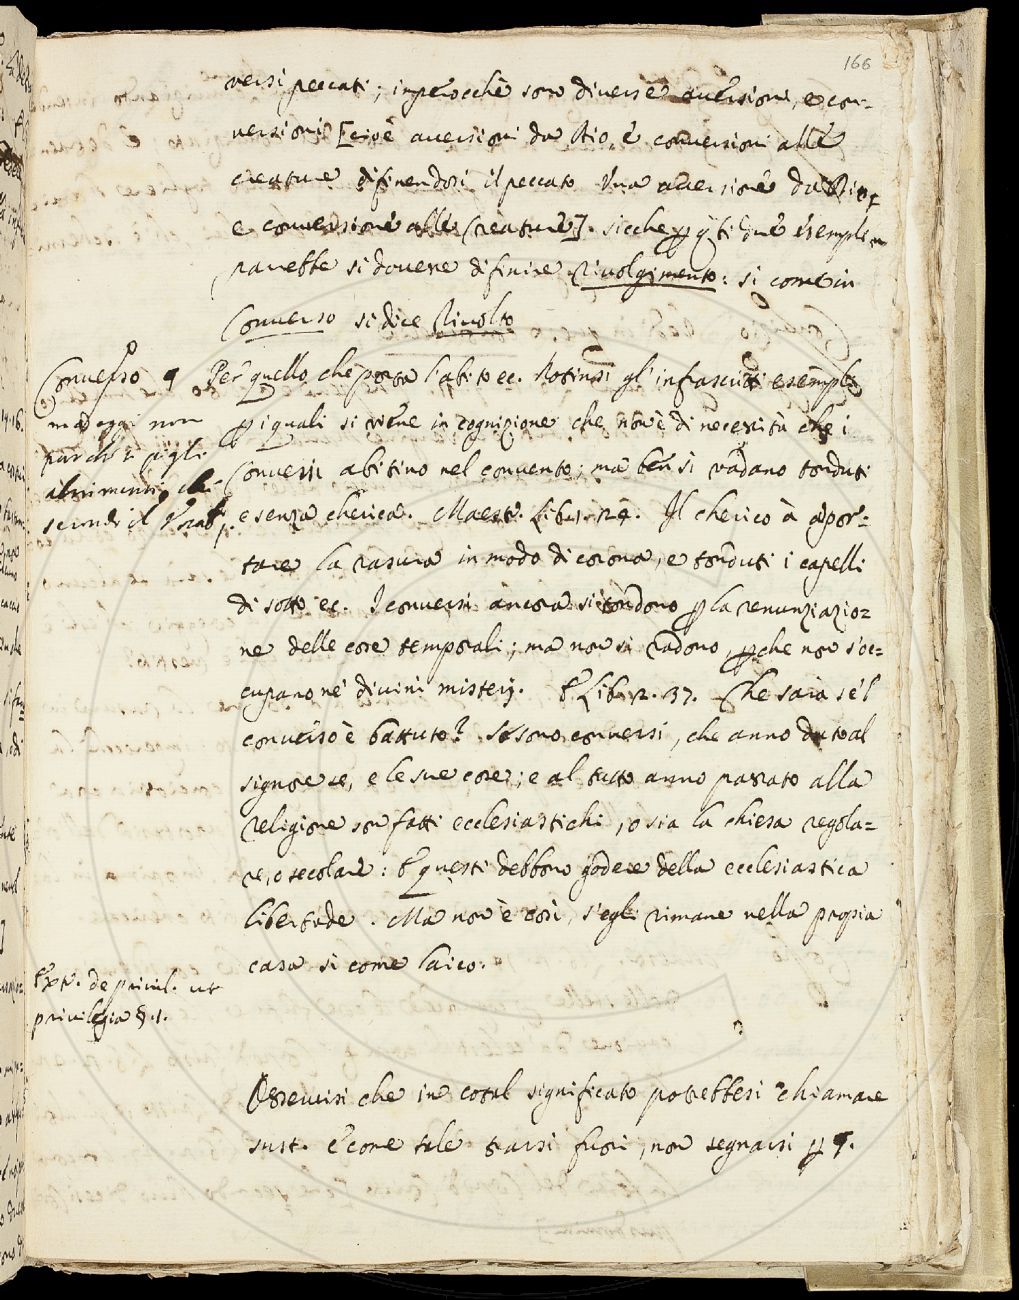 166
versi peccati; inperocchè sono diverse aversioni, e con-
versioni [cioè aversioni da Dio, e conversioni alle
creature difinendosi il peccato Una aversione da Dio,
e conversione alle Creature]. sicche p q.ti due esempli
parrebbe si dovere difinire Rivolgimento: si come in
Converso si dice Rivolto
Converso ¶ Per quello che porta l'abito ec. Notinsi gl'infrascritti esempli
ma oggi non
p i quali si viene in cognizione che non è di necessità che i
par ch'e' pigli
Conversi abitino nel convento; ma ben sì vadano tonduti
altrimenti che
e senza cherica. Maest. Lib. 1. 29. Il cherico à a por-
secondo il Vocab.
tare la rasura in modo di corona, e tonduti i capelli
di sotto ec. I conversi ancora si tondono p la renunziazio-
ne delle cose temporali; ma non si radono, p che non s'oc-
cupano ne' divini misterj. E Lib. 2. 37. Che sarà se 'l
converso è battuto? Se sono conversi, che anno dato al
signore se, e le sue cose; e al tutto anno passato alla
religione son fatti ecclesiastichi, o sia la chiesa regola-
re, o secolare: E questi debbono godere della ecclesiastica
libertade. Ma non è così, s'egli rimane nella propia
casa si come laico.
Ext. de privil. ut
privilegia §. 1.
Osservisi che in cotal significato potrebbesi chiamare
sust. e come tale trarsi fuori, non segnarsi p ¶.